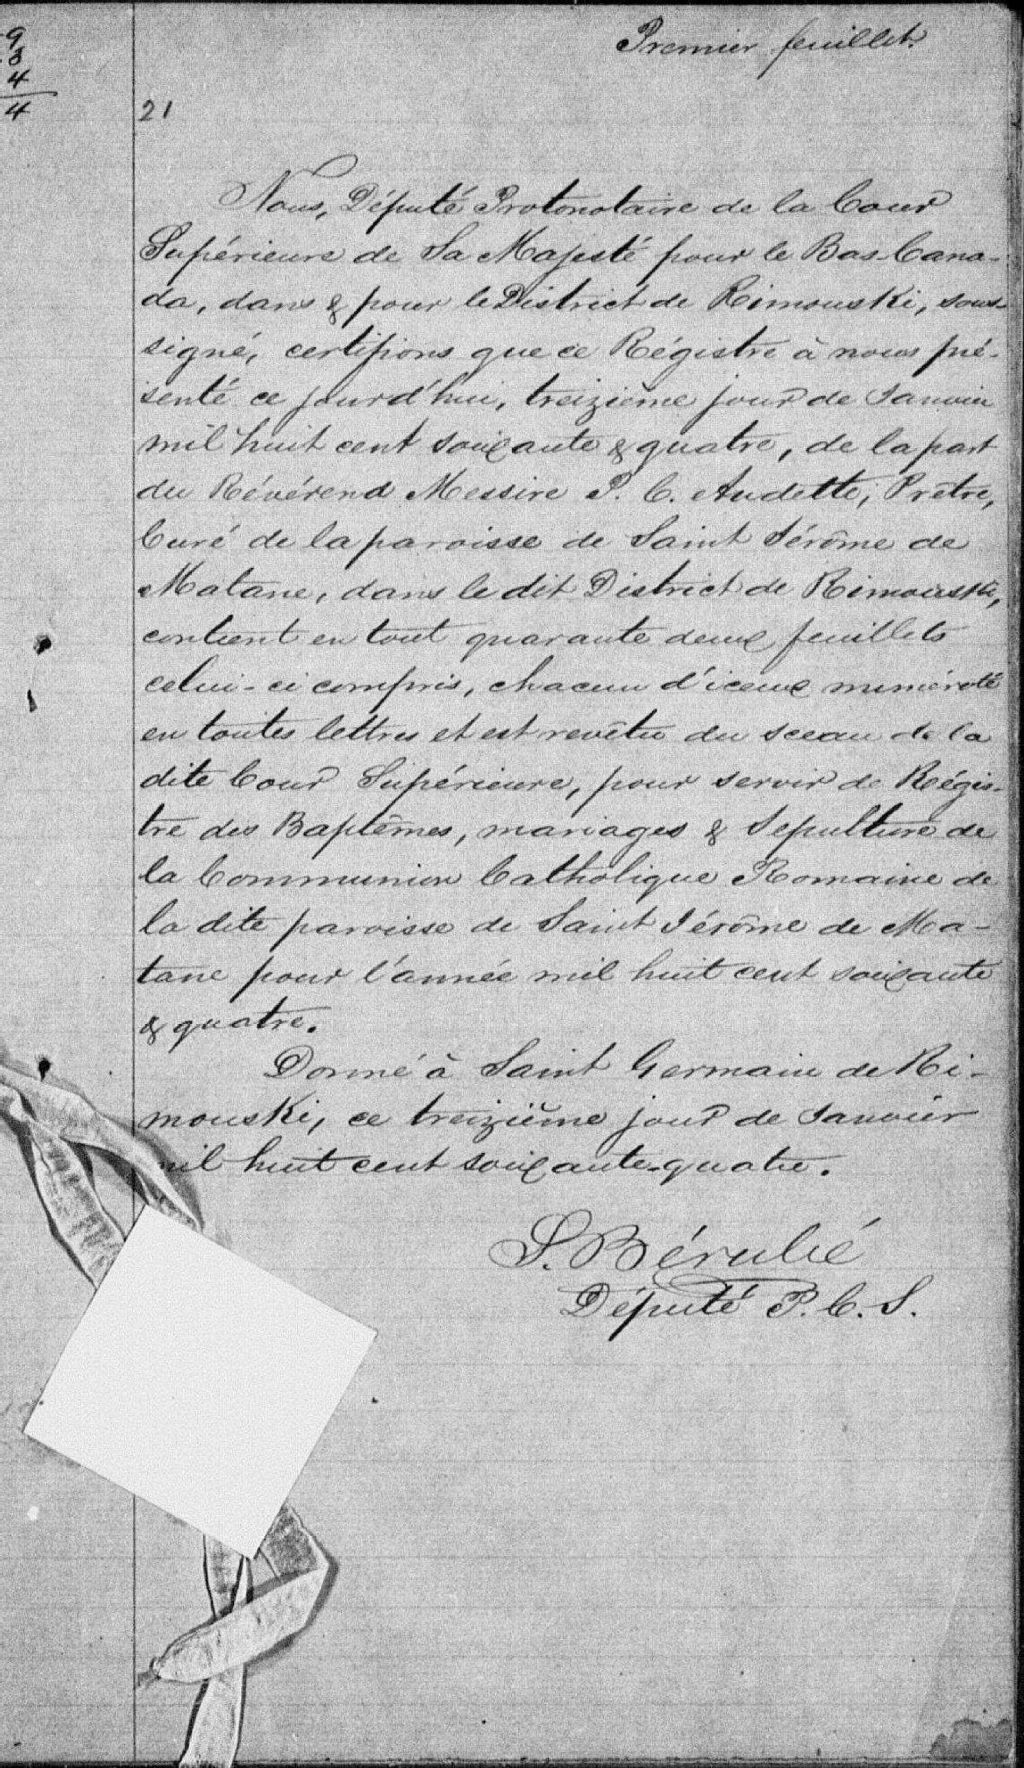 9
8
4
4
Premier feuillet.
21
Nous, Député Protonotaire de la Cour
Supérieure de Sa Majesté pour le Bas Cana-
da, dans & pour le District de Rimouski, sous-
signé, certifions que ce Régistre à nous pré-
senté ce jourd'hui, treizième jour de Janvier
mil huit cent soixante & quatre, de la part
du Révérend Messire P. C. Audette, Prêtre,
Curé de la paroisse de Saint Jérôme de
Matane, dans le dit District de Rimouski,
contient en tout quarante deux feuillets
celui-ci compris, chacun d'iceux numéroté
en toutes lettres et est revêtu du sceau de la
dite Cour Supérieure, pour servir de Régis-
tre des Baptêmes, mariages & Sépulture de
la Communion Catholique Romaine de
la dite paroisse de Saint Jérôme de Ma-
tane pour l'année mil huit cent soixante
& quatre.
Donné à Saint Germain de Ri-
mouski, ce treizième jour de Janvier
mil huit cent soixante-quatre.
Député P. C. S.